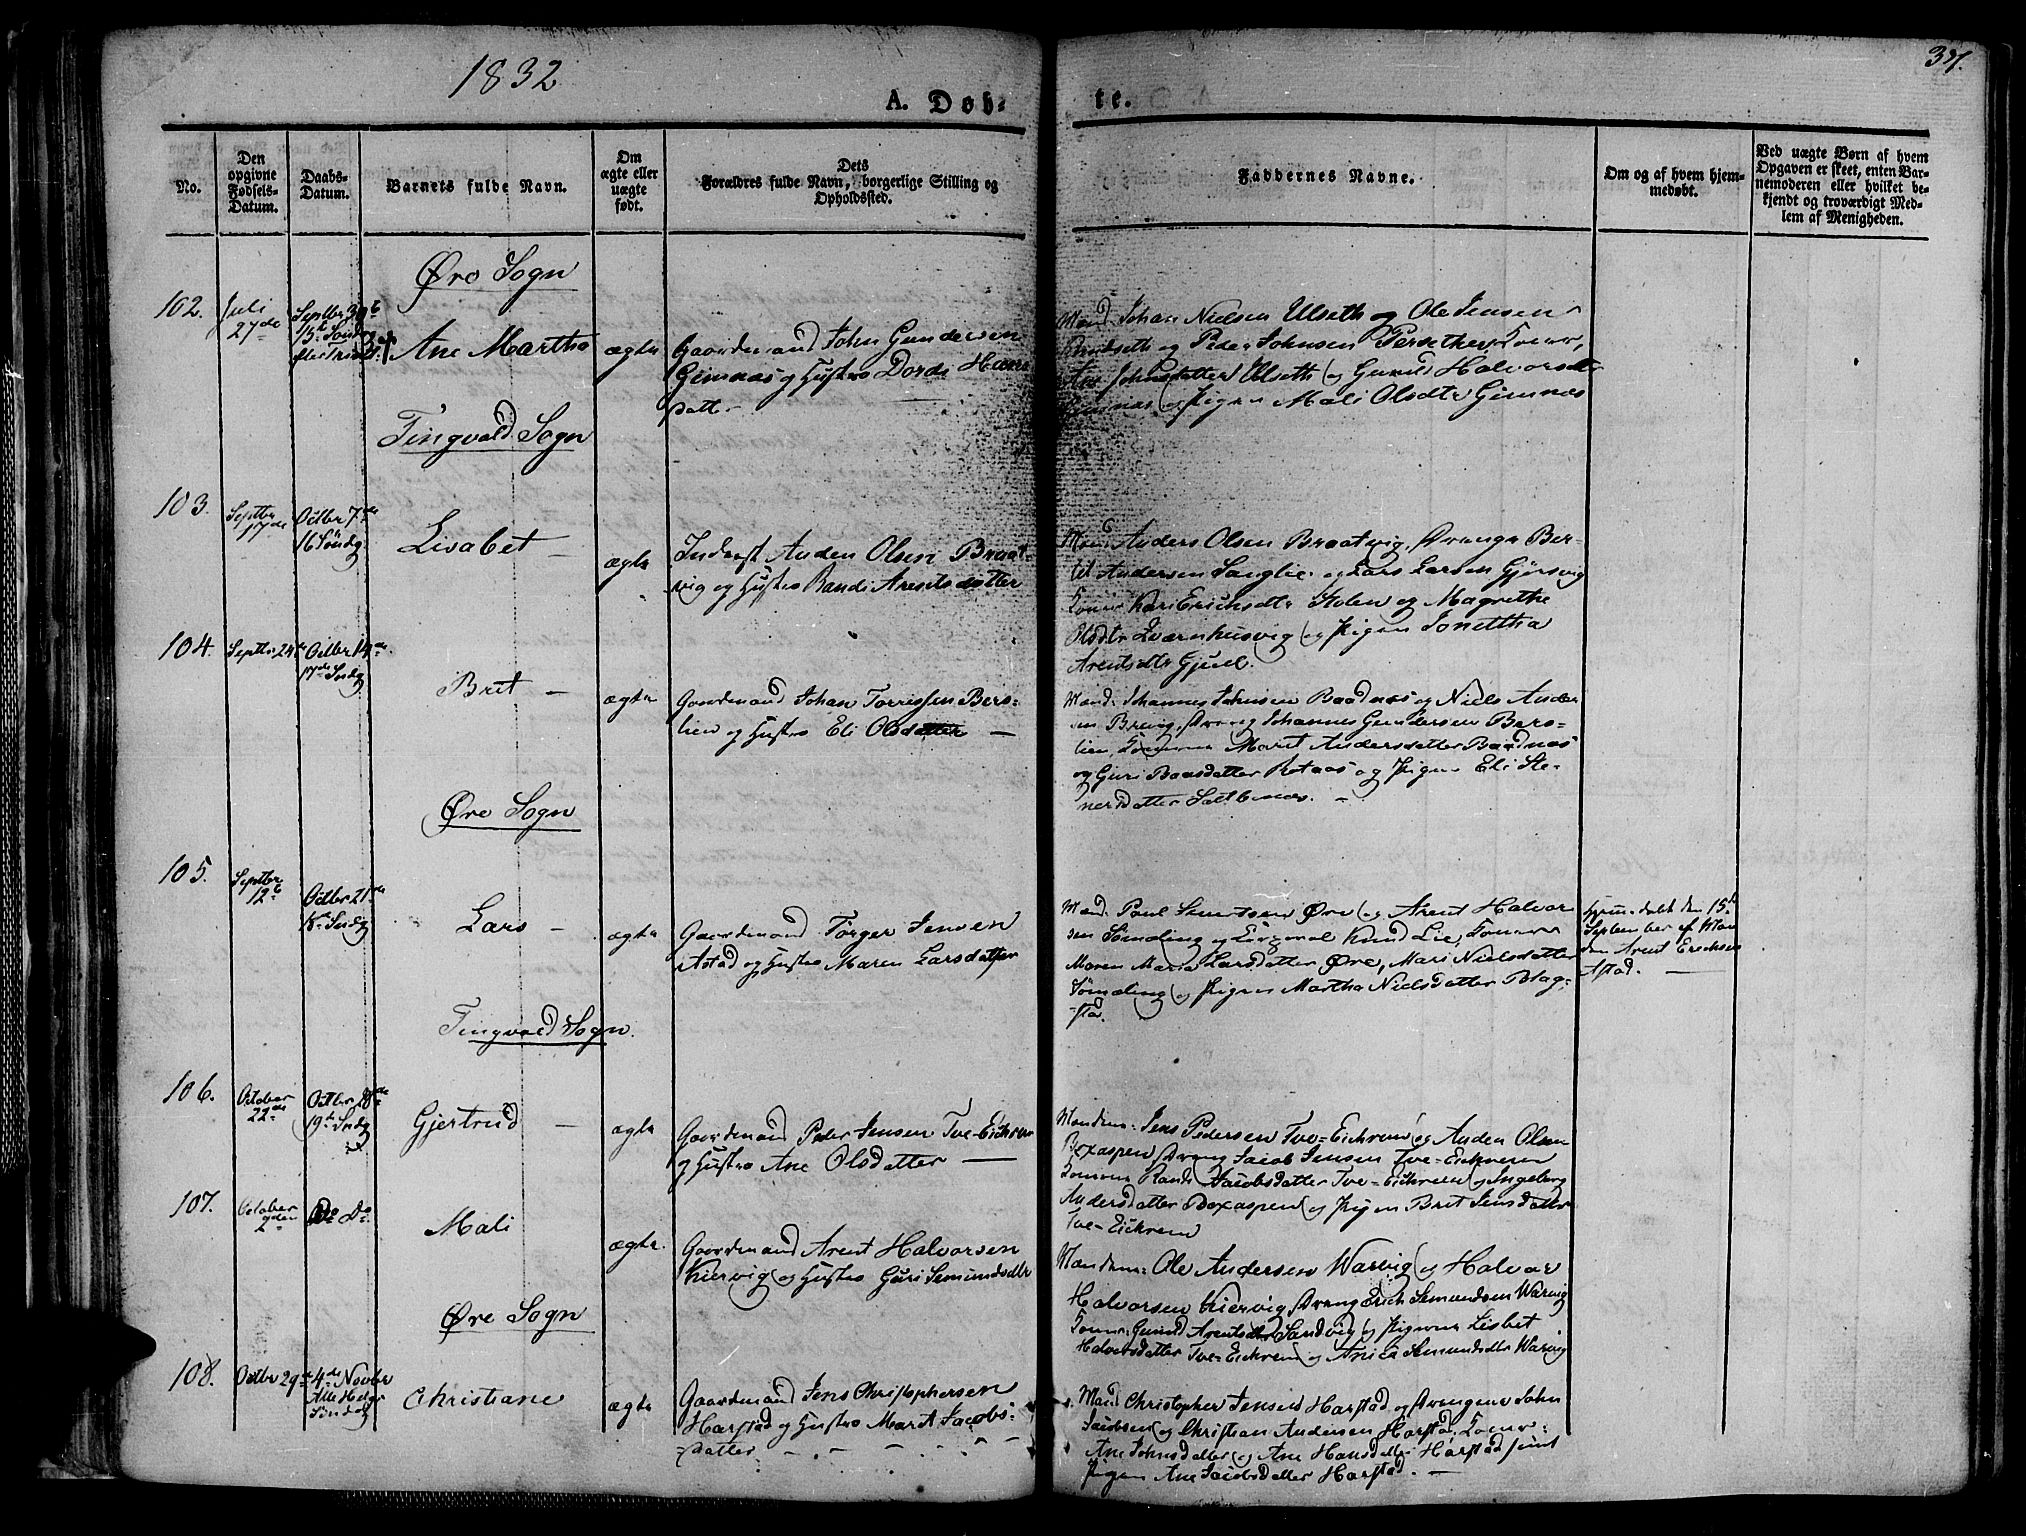 1832
37.
A. Døb-
te.
No.
Den
opgivne
Fødsels-
Datum.
Daabs-
Datum.
Barnets fulde Navn.
Om
ægte eller
uægte
født.
Dets
Forældres fulde Navn, borgerlige Stilling og
Opholdssted.
Faddernes Navne.
Om og af hvem hjem-
medøbt.
Ved uægte Børn af hvem
Opgaven er skeet, enten Bar-
nemoderen eller hvilket be-
kjendt og troværdigt Med-
lem af Menigheden.
Øre Sogn
102.
Juli
27de
Septbr 30t
15t Søndg
efter Trinit:
Ane Martha
ægte
Gaardmand John Gundersen
Gimnæs og Hustro Dordi
datt
Mænd: Johan Nielsen Ulseth og Ole Jensen
og Peder Johnsen
Ane Johnsdatter Ulseth og Gunild Halvorsdtr
Gimnæs og Pigen Mali Olsdtr Gimnæs
Tingvold Sogn
103.
Septbr
17de
Octbr 7de
16 Søndg
Lisabet –
ægte
Inderst Anden Olsen Braat-
vig og Hustro Randi Arentsdatter
Mænd: Anders Olsen Braatvig, Drenge Ber-
til Andersen Sanglie og Lars Larsen Gjørsvig
Koner Kari Erichsdtr Stolen og Magrethe
Olsdtr Qværnhusvig og Pigen Jonettha
Arentsdtr Gjuel.
104.
Septbr 24de
Octbr 14de
17de Søndg
Brit –
ægte
Gaardmand Johan Torrissen Bers-
lien og Hustro Eli Olsdatter –
Mænd: Johannes Johnsen Baadnæs og Niels Ander
sen Dreng Johannes Gundersen Bers-
lien, Konerne Marit Andersdatter Baadnæs
og Guri Baardsdatter Rotaas og Pigen Eli Ste-
nersdatter –
Øre Sogn
105.
Septbr
12te
Octbr 21de
18de Søndg
Lars –
ægte
Gaardmand Torger Jensen
Astad og Hustro Maren Larsdatter
Mænd: Poul Sivertsen Øre og Arent Halvor
sen Sømeling og Knud Lie, Konerne
Maren Maria Larsdatter Øre, Mari Nielsdatter
Sømeling og Pigen Martha Nielsdatter Blag-
stad.
Hjemmedøbt den 15de
September af Man
den Arent Erichsen
Astad. –
Tingvold Sogn.
106.
October
22de
Octbr 28de
19de Søndg
Gjertrud –
ægte
Gaardmand Peder Jensen Tve-Eichrem
og Hustro Ane Olsdatter –
Mændene: Jens Pedersen Tve-Eichrem og Anden Olsen
Boxaspen Dreng Jacob Jensen Tve-Eichrem
Konerne Randi Jacobsdatter Tve-Eichrem og Ingeborg
Andersdatter Boxaspen og Pigen Brit Jensdatter
Tve-Eichrem
107.
October
2den
Do Do
Mali
ægte.
Gaardmand Arent Halvorsen
Kiervig og Hustro Guri Semundsdtr
Mændene: Ole Andersen Warvig og Halvor
Halvorsen Kiervig Dreng Erich Semundsen Warvig
Koner: Gunild Arentsdtr Sandvig og Pigerne Lisbet
Halvorsdatter Tve-Eichrem og Ane Semundsdtr Warvig
Øre Sogn
108.
Octbr 29de
4de Novbr
Alle Helgn
Søndag
Christiane
ægte
Gaardmand Jens Christophersen
Harstad og Hustro Marit Jacobs-
datter
Mænd Christopher Jensen Harstad og Drengene John
Jacobsen og Christian Andersen Harstad, Koner:
Ane Johnsdatter og Ane Hansdatter Harstad samt
Pigen Ane Jacobsdatter Harstad. –